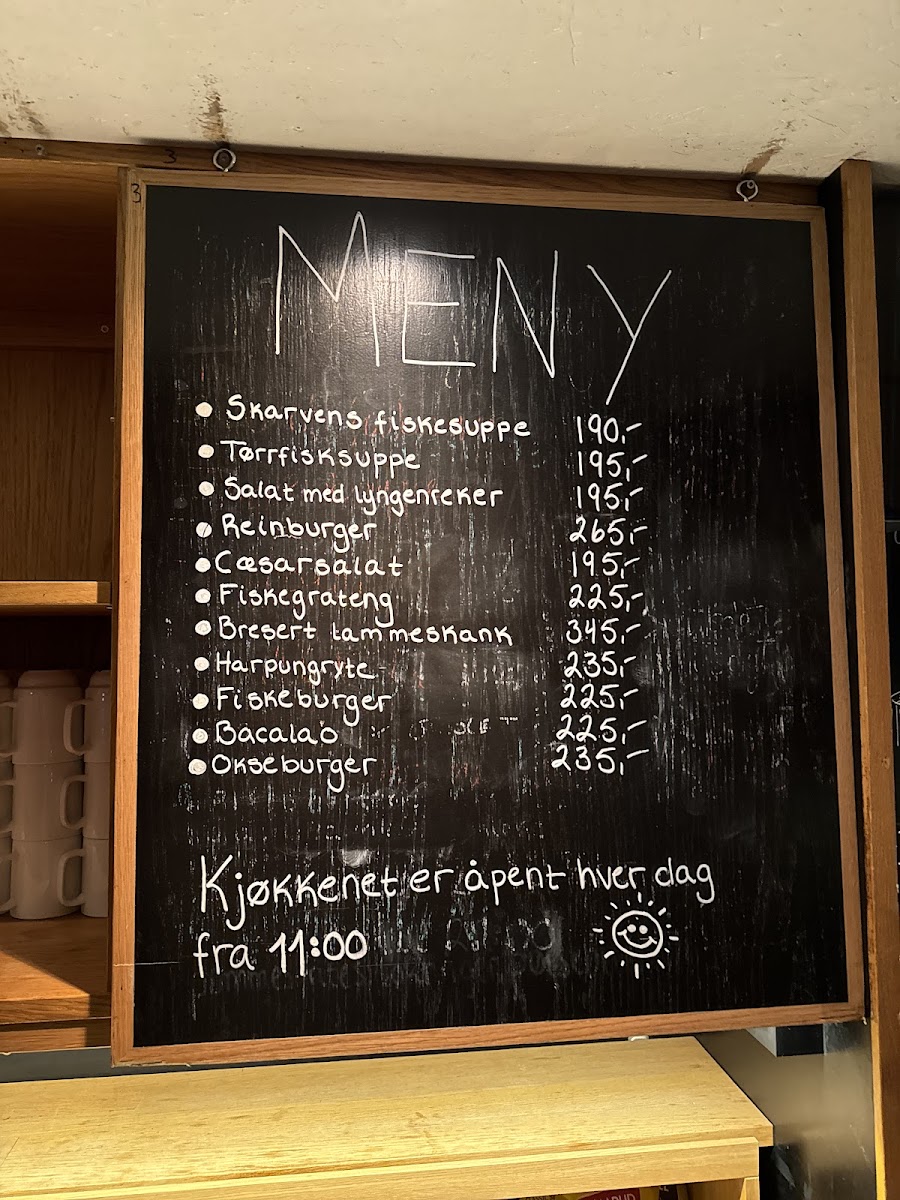 3
3
MENY
Skarvens fiskesuppe 190,-
Tørrfisksuppe 195,-
Salat med lyngenreker 195,-
Reinburger 265,-
Cæsarsalat 195,-
Fiskegrateng 225,-
Bresert lammeskank 345,-
Harpungryte 235,-
Fiskeburger 225,-
Bacalao 225,-
Okseburger 235,-
Kjøkkenet er åpent hver dag
fra 11:00